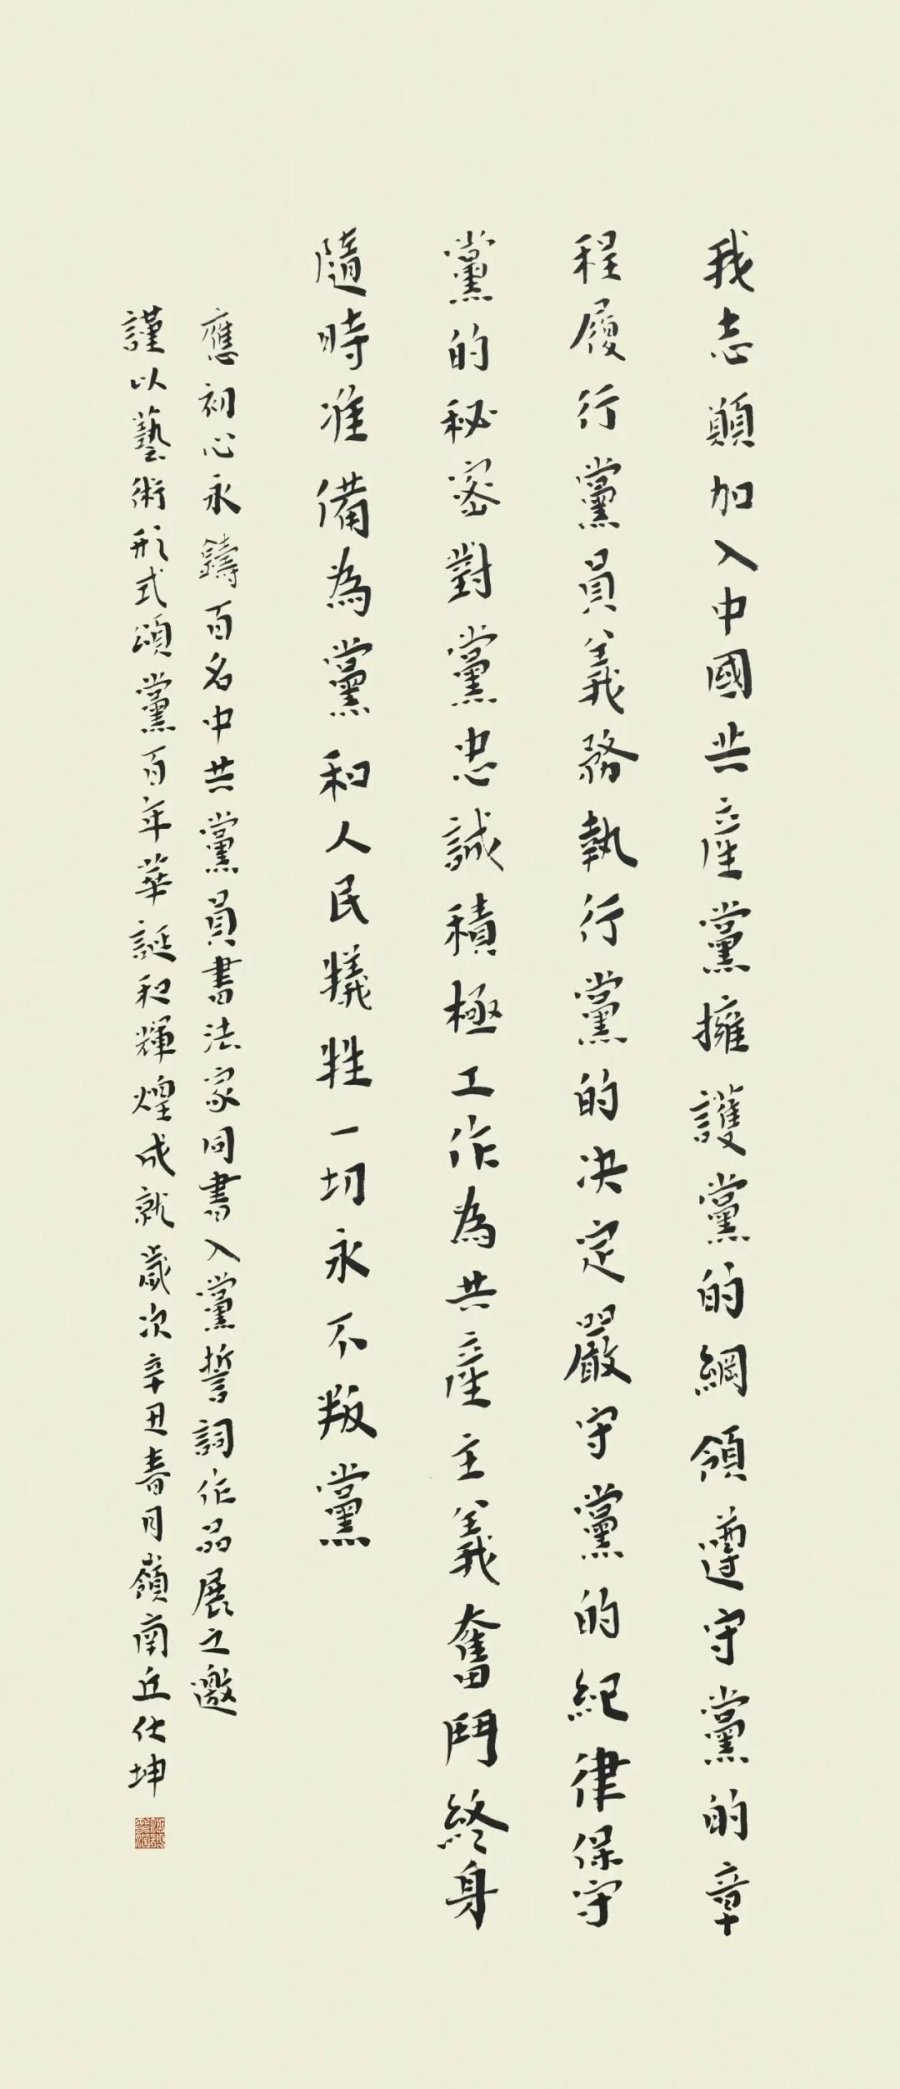 我志願加入中國共産黨擁護黨的綱領遵守黨的章
程履行黨員義務執行黨的决定嚴守黨的紀律保守
黨的秘密對黨忠誠積極工作為共産主義奮鬥終身
隨時准備為黨和人民犧牲一切永不叛黨
應初心永鑄百名中共黨員書法家同書入黨誓詞作品展之邀
謹以藝術形式頌黨百年華誕和輝煌成就歲次辛丑春月嶺南丘仕坤